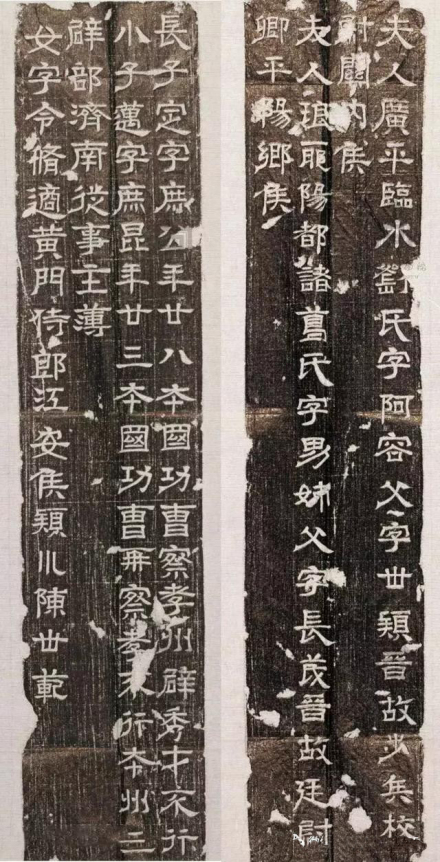 夫人廣平臨水劉氏字阿容父字世穎晉故步兵校
尉關內侯
夫人琅耶陽都諸葛氏字男姊父字長茂晉故廷尉
卿平陽鄉侯
長子定字庶公年廿八本國功曹察孝州辟秀才不行
小子邁字庶昆年廿三本國功曹再察孝不行本州三
辟部濟南從事主薄
女字令脩適黃門侍郎江安侯穎川陳世範